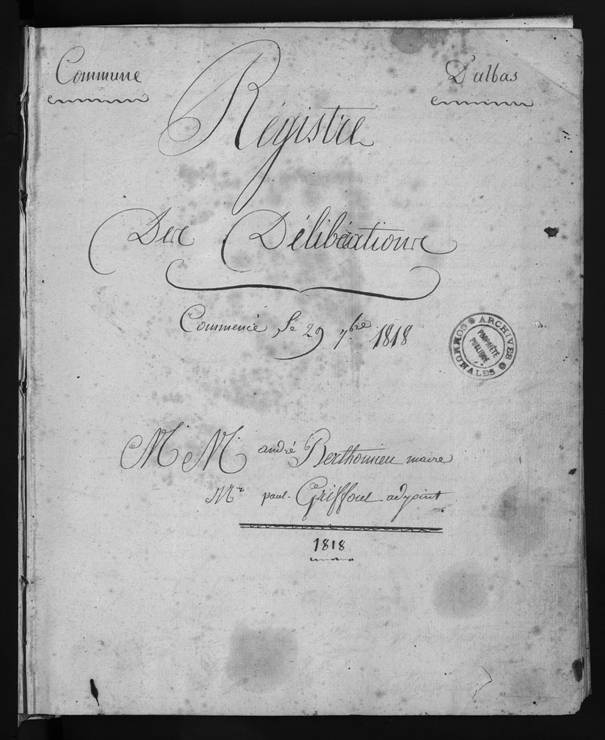 Commune D'albas
Régistre
Des Délibérations
Commencé le 29 7bre 1818
M M andré Berthomieu maire
Mr paul Griffoul adjoint
1818
ARCHIVES COMMUNALES
PROPRIÉTÉ
PUBLIQUE